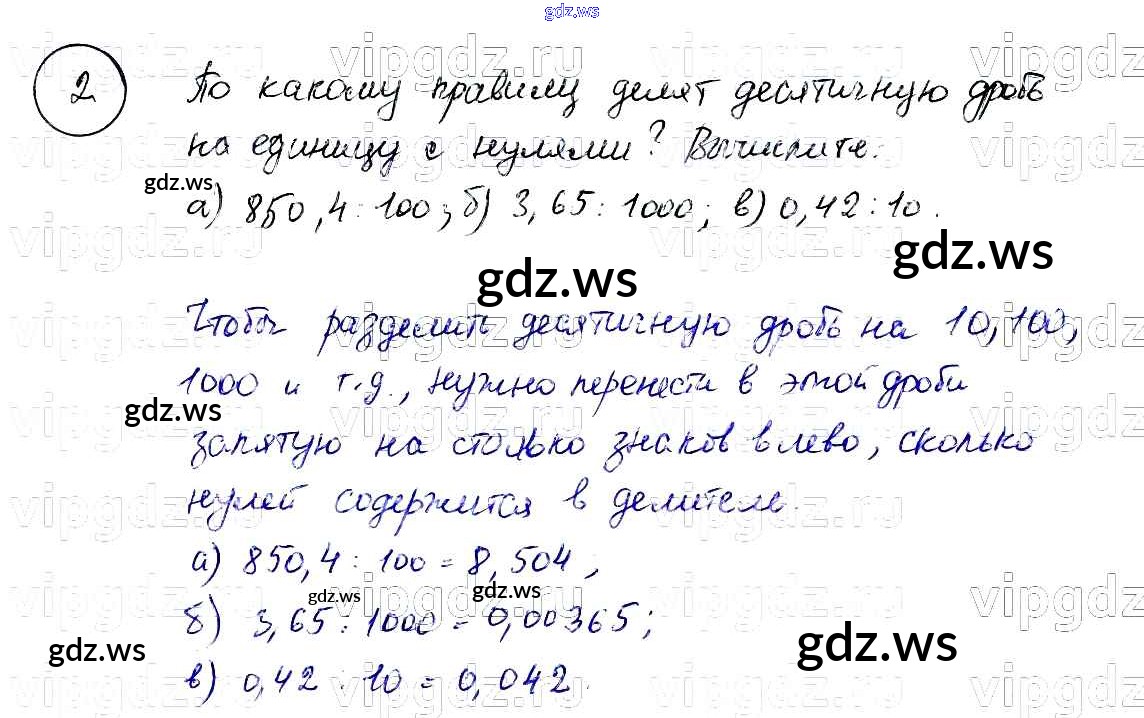 gdz.ws
2 По какому правилу делят десятичную дробь
на единицу с нулями? Вычислите:
gdz.ws
а) 850,4 : 100; б) 3,65 : 1000; в) 0,42 : 10.
gdz.ws
gdz.ws
Чтобы разделить десятичную дробь на 10, 100,
1000 и т.д., нужно перенести в этой дроби
gdz.ws
запятую на столько знаков влево, сколько
нулей содержится в делителе.
а) 850,4 : 100 = 8,504;
gdz.ws
gdz.ws
б) 3,65 : 1000 = 0,00365;
gdz.ws
gdz.ws
в) 0,42 : 10 = 0,042.
vipgdz.ru